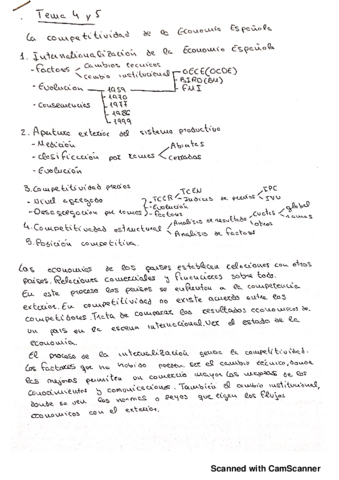 Tema 4 y 5
La competitividad de la Economía Española
1. Internationalización de la Economía Española
- Factores
Cambios tecnicos
Cambio institucional
OECE (OCDE)
BIRD (BM)
FMI
- Evolucion
1959
1970
1977
1986
1999
- Consecuencias
2. Apertura exterior del sistema productivo
- Medición
- Clasificación por ramas
Abiertas
Cerradas
- Evolución
3. Competitividad precios
- Nivel agregado
- Desagregación por ramas
TCER
TCEN
Indices de precios
IPC
IVU
- Evolución
- Factores
4. Competitividad estructural
Analisis de resultado
Cuotas
global
ramas
otros
Analisis de factores
5. Posición competitiva.
Las economías de los países establecen relaciones con otros
países. Relaciones comerciales y financieras sobre todo.
En este proceso los países se enfrentan a la competencia
exterior. En competitividad no existe acuerdo entre los
competidores. Trata de comparar los resultados economicos de
un país en la escena internacional. Ver el estado de la
economía.
El proceso de la internalización genera la competitividad.
Los factores que ha habido pueden ser el cambio técnico, donde
las mejoras permiten un comercio mayor las mejoras de los
conocimientos y comunicaciones. Tambien el cambio institucional,
donde se ven las normas o leyes que rigen los flujos
economicos con el exterior.
Scanned with CamScanner